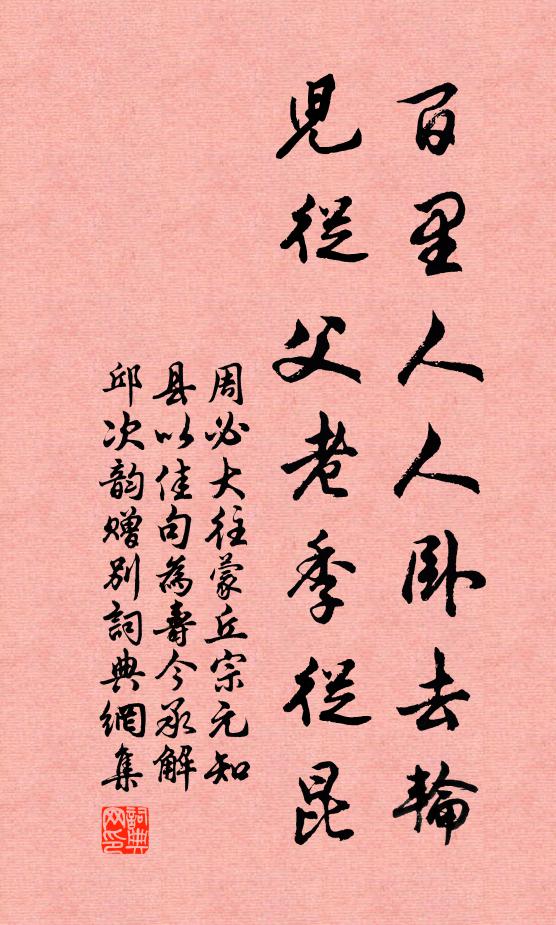 百里人人卧去輪
児從父老季從昆
周必大往蒙丘宗元知
县以佳句為壽今承解
邱次韵贈别詞典網集
詞典网印